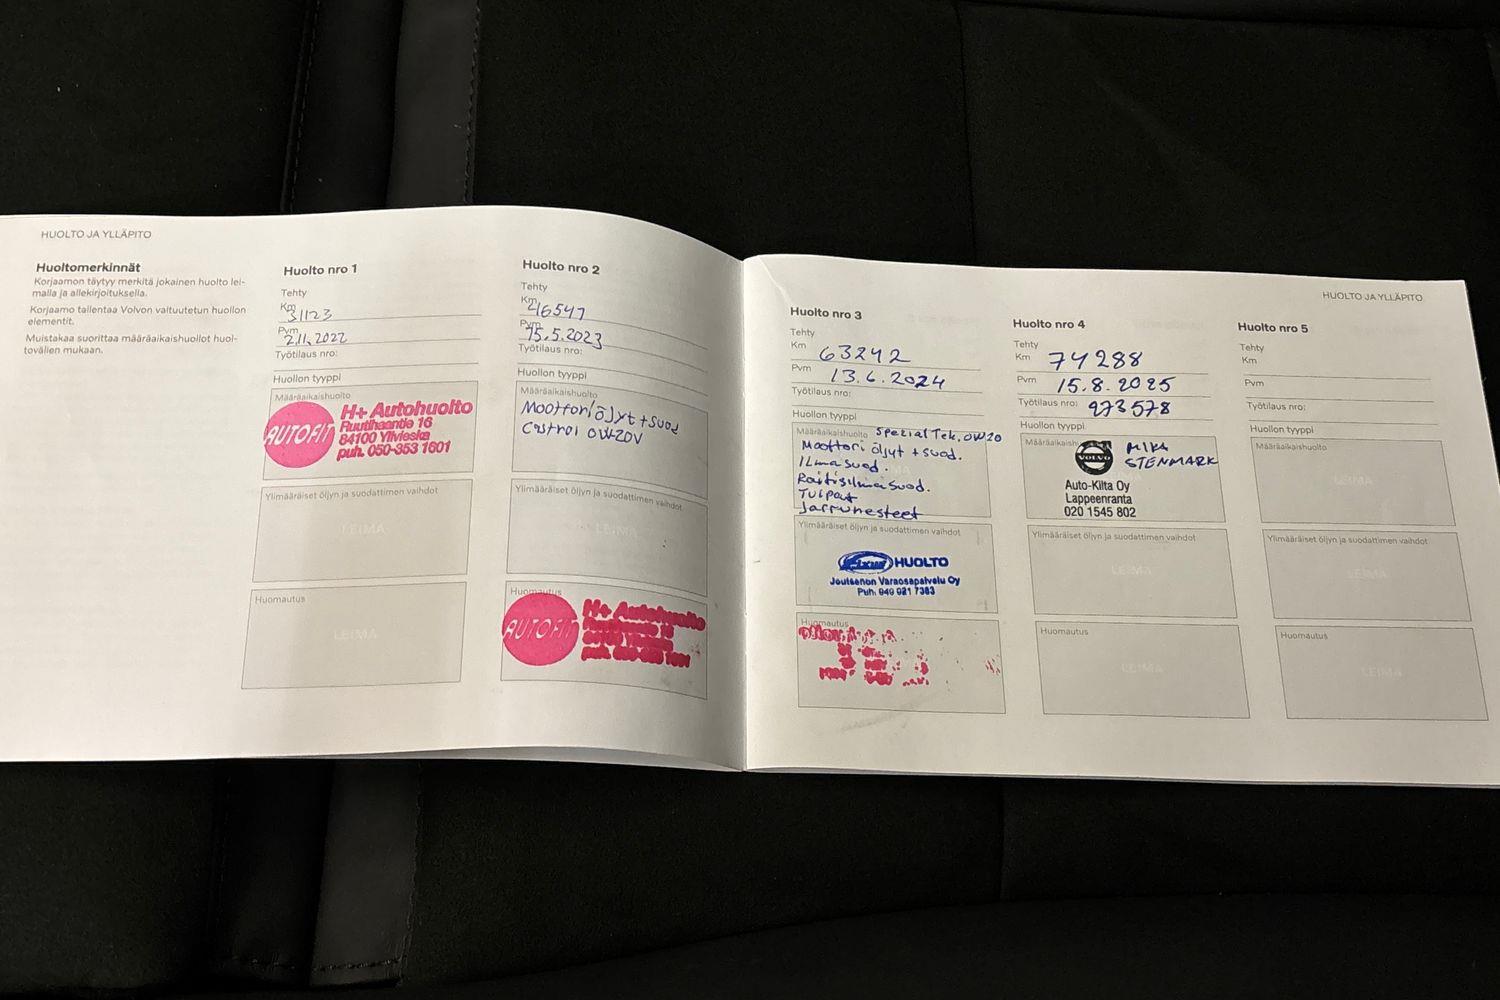 HUOLTO JA YLLÄPITO
Huoltomerkinnät
Korjaamon täytyy merkitä jokainen huolto lei-
malla ja allekirjoituksella.
Korjaamo tallentaa Volvon valtuutetun huollon
elementit.
Muistakaa suorittaa määräaikaishuollot huol-
tovälien mukaan.
Huolto nro 1
Tehty
Km 31123
Pvm 2.11.2022
Työtilaus nro:
Huollon tyyppi
Määräaikaishuolto
AUTOFIT
H+ Autohuolto
Ruutihaantie 16
84100 Ylivieska
puh. 050-353 1601
Ylimääräiset öljyn ja suodattimen vaihdot
LEIMA
Huomautus
LEIMA
Huolto nro 2
Tehty
Km 46547
Pvm 15.5.2023
Työtilaus nro:
Huollon tyyppi
Määräaikaishuolto
Moottoriöljyt + suod
Castrol 0W20V
Ylimääräiset öljyn ja suodattimen vaihdot
LEIMA
Huomautus
AUTOFIT
H+ Autohuolto
HUOLTO JA YLLÄPITO
Huolto nro 3
Tehty
Km 63242
Pvm 13.6.2024
Työtilaus nro:
Huollon tyyppi
Määräaikaishuolto SpezialTek. 0W20
Moottori öljyt + suod.
Ilmasuod.
Raitisilmasuod.
Tulpat
Jarrunesteet
Ylimääräiset öljyn ja suodattimen vaihdot
Fixus HUOLTO
Joutsenon Varaosapalvelu Oy
Puh. 040 921 7363
Huomautus
Huolto nro 4
Tehty
Km 74288
Pvm 15.8.2025
Työtilaus nro: 273578
Huollon tyyppi
VOLVO
MIKA
STENMARK
Auto-Kilta Oy
Lappeenranta
020 1545 802
Ylimääräiset öljyn ja suodattimen vaihdot
LEIMA
Huomautus
LEIMA
Huolto nro 5
Tehty
Km
Pvm
Työtilaus nro:
Huollon tyyppi
Määräaikaishuolto
LEIMA
Ylimääräiset öljyn ja suodattimen vaihdot
LEIMA
Huomautus
LEIMA